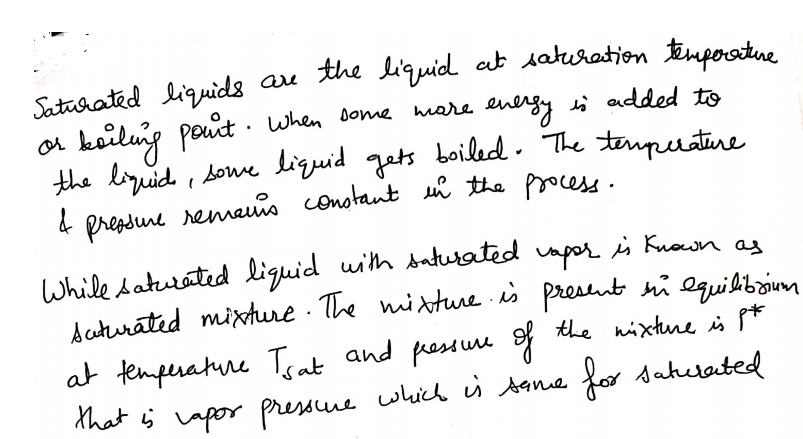 Saturated liquids are the liquid at saturation temperature
or boiling point. When some more energy is added to
the liquid, some liquid gets boiled. The temperature
& pressure remains constant in the process.
While saturated liquid with saturated vapor is Known as
saturated mixture. The mixture is present in equilibrium
at temperature Tsat and pressure of the mixture is P*
that is vapor pressure which is same for saturated